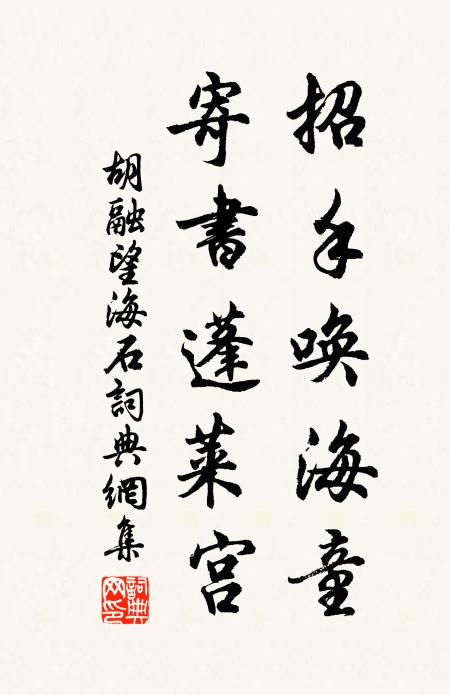 招手唤海童
寄書蓬莱宫
胡融望海石詞典網集
詞典
网印